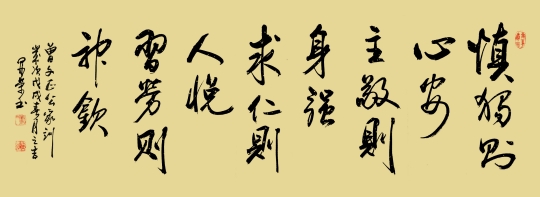 慎独则
心安
主敬則
身强
求仁則
人悦
習勞则
神欽
曾文正公家训
岁次戊戌春月之吉